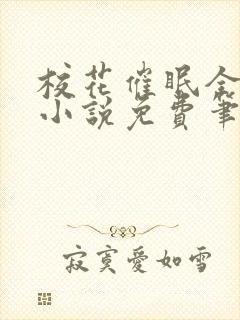 校花催眠
小說免費筆
寂寞愛如雪